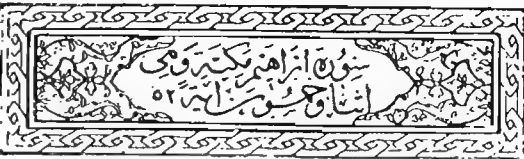 سورة ابراهيم مكية وهى
اثنتا وخمسون اية ٥٢